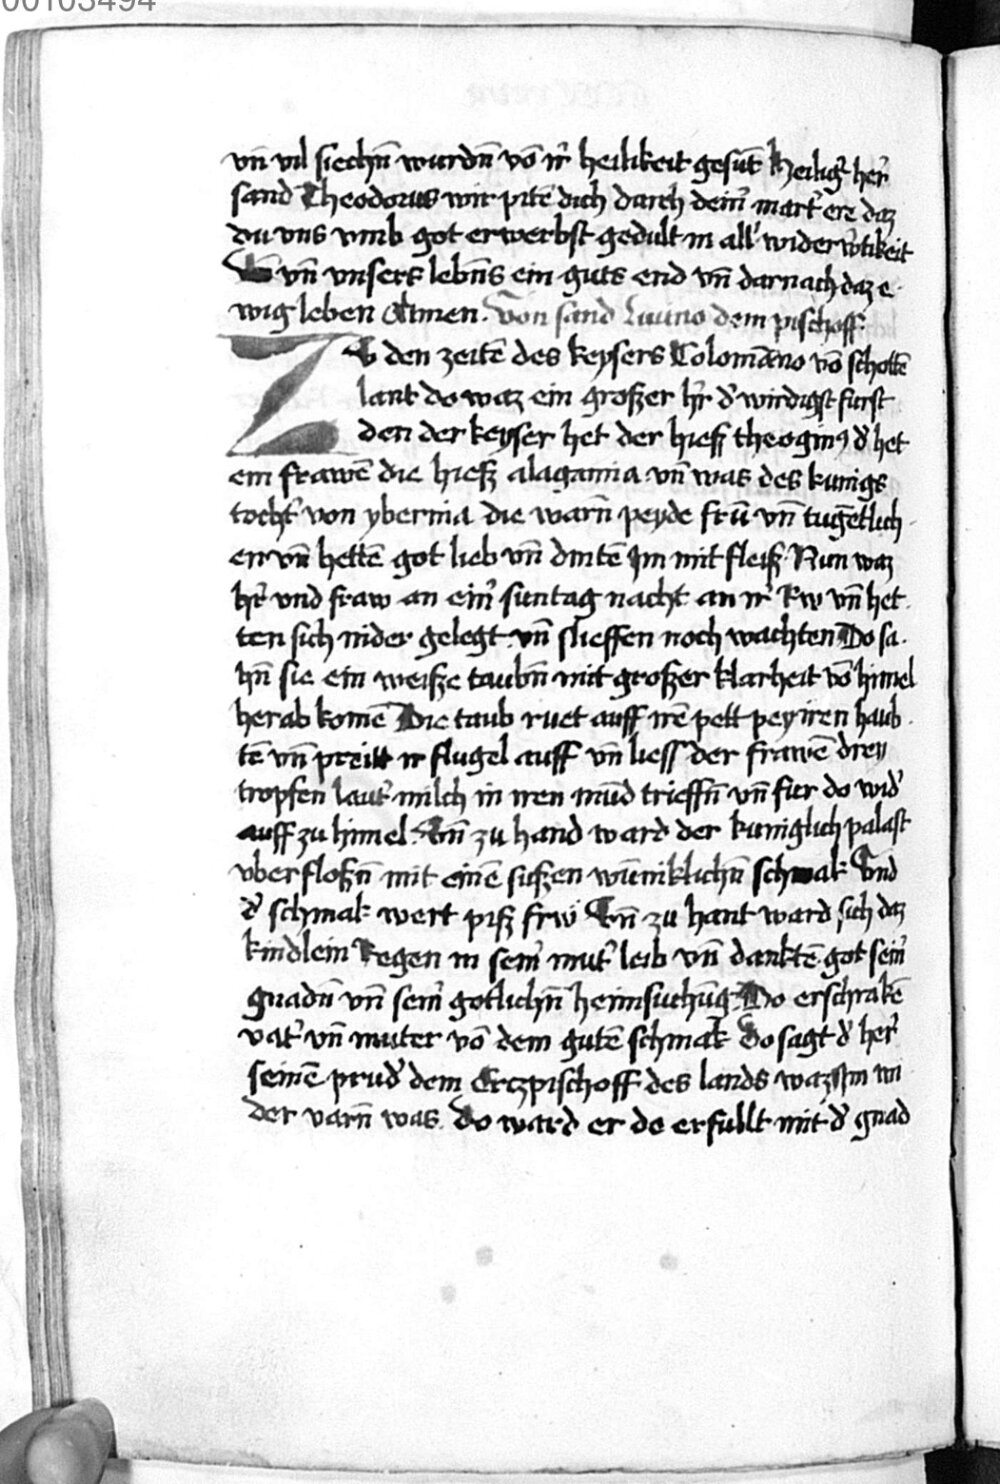 00103494
vn̄ vil siechn̄ wurdn̄ vō ir̄ heilikeit gesūt Heilig' her'
sand Theodorus wir pitē dich durch dein' mart' ere daz
du vns vmb got erwerbst gedult in all' widerw'tikeit
vn̄ vnsers lebn̄s ein guts end vn̄ darnach daz e-
wig leben Amen. Von sand Liuino dem pischoff.
ZV den zeitē des keysers Colomāno vō schottē
lant do waz ein groszer h'r d' wirdigst furst
den der keyser het der hiesz theogin9 d' het
ein frawē die hiesz alagamia vn̄ was des kunigs
tocht' von ybernia die warn̄ peyde frū vn̄ tugētlich-
en vn̄ hettē got lieb vn̄ dintē Im mit fleisz. Nun waz
h'r vnd fraw an ein' suntag nacht an ir' Rw vn̄ het-
ten sich nider gelegt vn̄ slieffen noch wachten Do sa-
hn̄ sie ein weisze taubn̄ mit groszer klarheit vō himel
herab komē Die taub ruet auff irē pett pey iren haub-
tē vn̄ preitt ir flugel auff vn̄ liess der frawē drey
tropfen laut' milch in iren mūd trieffn̄ vn̄ fur do wid'
auff zu himel. Vn̄ zu hand ward der kuniglich palast
vberfloszn̄ mit einē suszen wūniklichn̄ schmak Vnd
d' schmak wert pisz frw Vn̄ zu hant ward sich daz
kindlein Regen in sein' mut' leib vn̄ danktē got sein'
gnadn̄ vn̄ sein' gotlichn̄ heimsuchūg Do erschrakē
vat' vn̄ muter vō dem gutē schmak Do sagt d' her'
seinē prud' dem Ertzpischoff des lands waz Im wi-
der varn̄ was. Do ward er do erfullt mit d' gnad